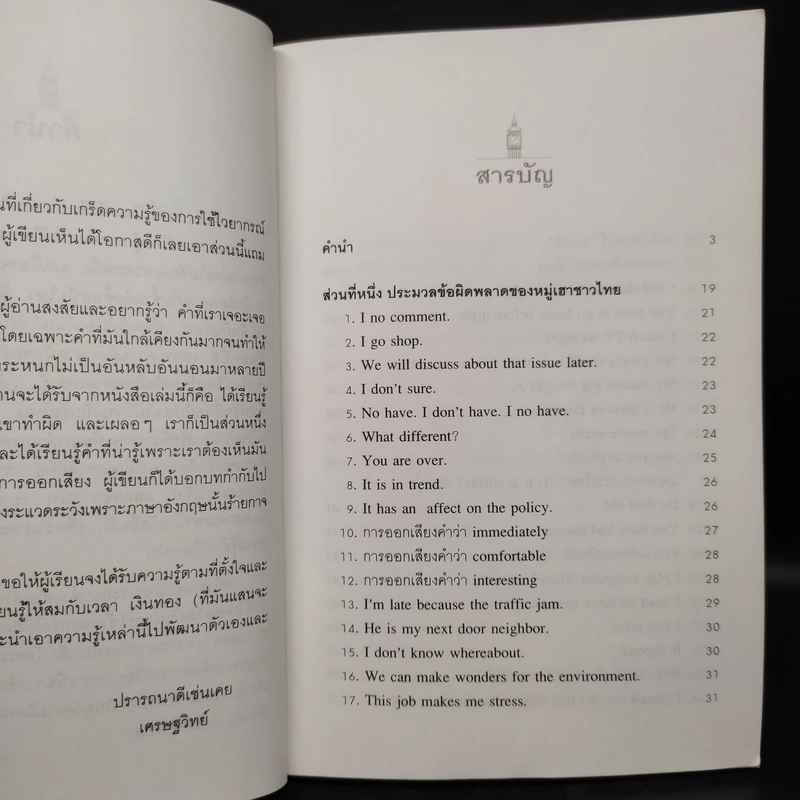 นที่เกี่ยวกับเกร็ดความรู้ของการใช้ไวยากรณ์
ผู้เขียนเห็นได้โอกาสดีก็เลยเอาส่วนนี้แถม
ผู้อ่านสงสัยและอยากรู้ว่า คำที่เราเจอะเจอ
โดยเฉพาะคำที่มันใกล้เคียงกันมากจนทำให้
ระหนกไม่เป็นอันหลับอันนอนมาหลายปี
านจะได้รับจากหนังสือเล่มนี้ก็คือ ได้เรียนรู้
เขาทำผิด และเผลอๆ เราก็เป็นส่วนหนึ่ง
ละได้เรียนรู้คำที่น่ารู้เพราะเราต้องเห็นมัน
การออกเสียง ผู้เขียนก็ได้บอกบทกำกับไป
งระแวดระวังเพราะภาษาอังกฤษนั้นร้ายกาจ
ขอให้ผู้เรียนจงได้รับความรู้ตามที่ตั้งใจและ
ยนรู้ให้สมกับเวลา เงินทอง (ที่มันแสนจะ
ะนำเอาความรู้เหล่านี้ไปพัฒนาตัวเองและ
ปรารถนาดีเช่นเคย
เศรษฐวิทย์
สารบัญ
คำนำ 3
ส่วนที่หนึ่ง ประมวลข้อผิดพลาดของหมู่เฮาชาวไทย 19
1. I no comment. 21
2. I go shop. 22
3. We will discuss about that issue later. 22
4. I don't sure. 23
5. No have. I don't have. I no have. 23
6. What different? 24
7. You are over. 25
8. It is in trend. 26
9. It has an affect on the policy. 26
10. การออกเสียงคำว่า immediately 27
11. การออกเสียงคำว่า comfortable 28
12. การออกเสียงคำว่า interesting 28
13. I'm late because the traffic jam. 29
14. He is my next door neighbor. 30
15. I don't know whereabout. 30
16. We can make wonders for the environment. 31
17. This job makes me stress. 31